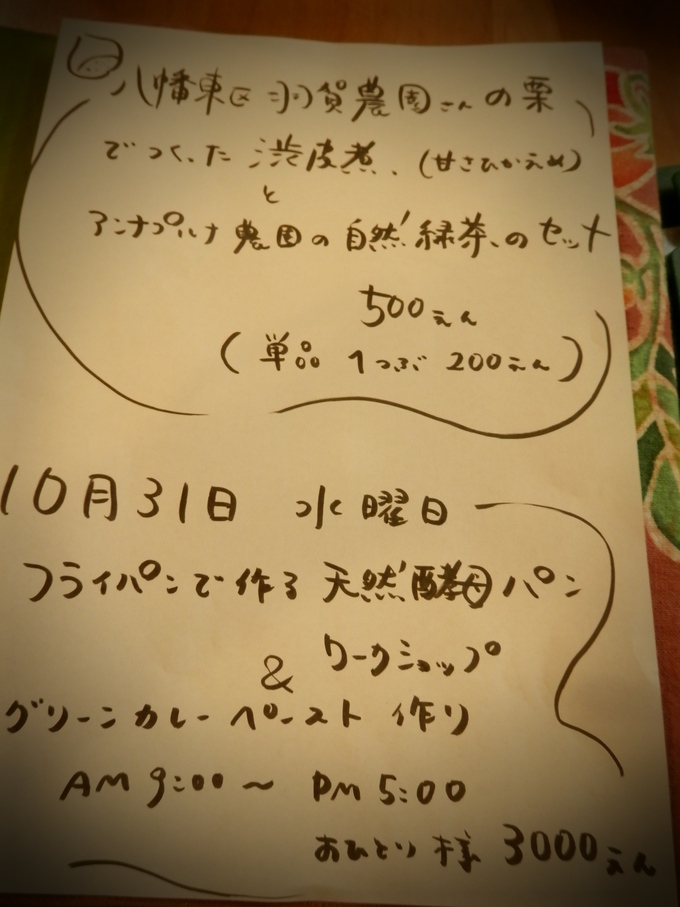 八幡東区 羽賀農園さんの栗
でつくった 渋皮煮、(甘さひかえめ)
と
アンナプルナ 農園の自然緑茶、のセット
500えん
(単品 1つぶ 200えん)
10月31日 水曜日
フライパンで作る 天然酵母パン
ワークショップ
&
グリーンカレーペースト 作り
AM 9:00 〜 PM 5:00
おひとり様 3000えん